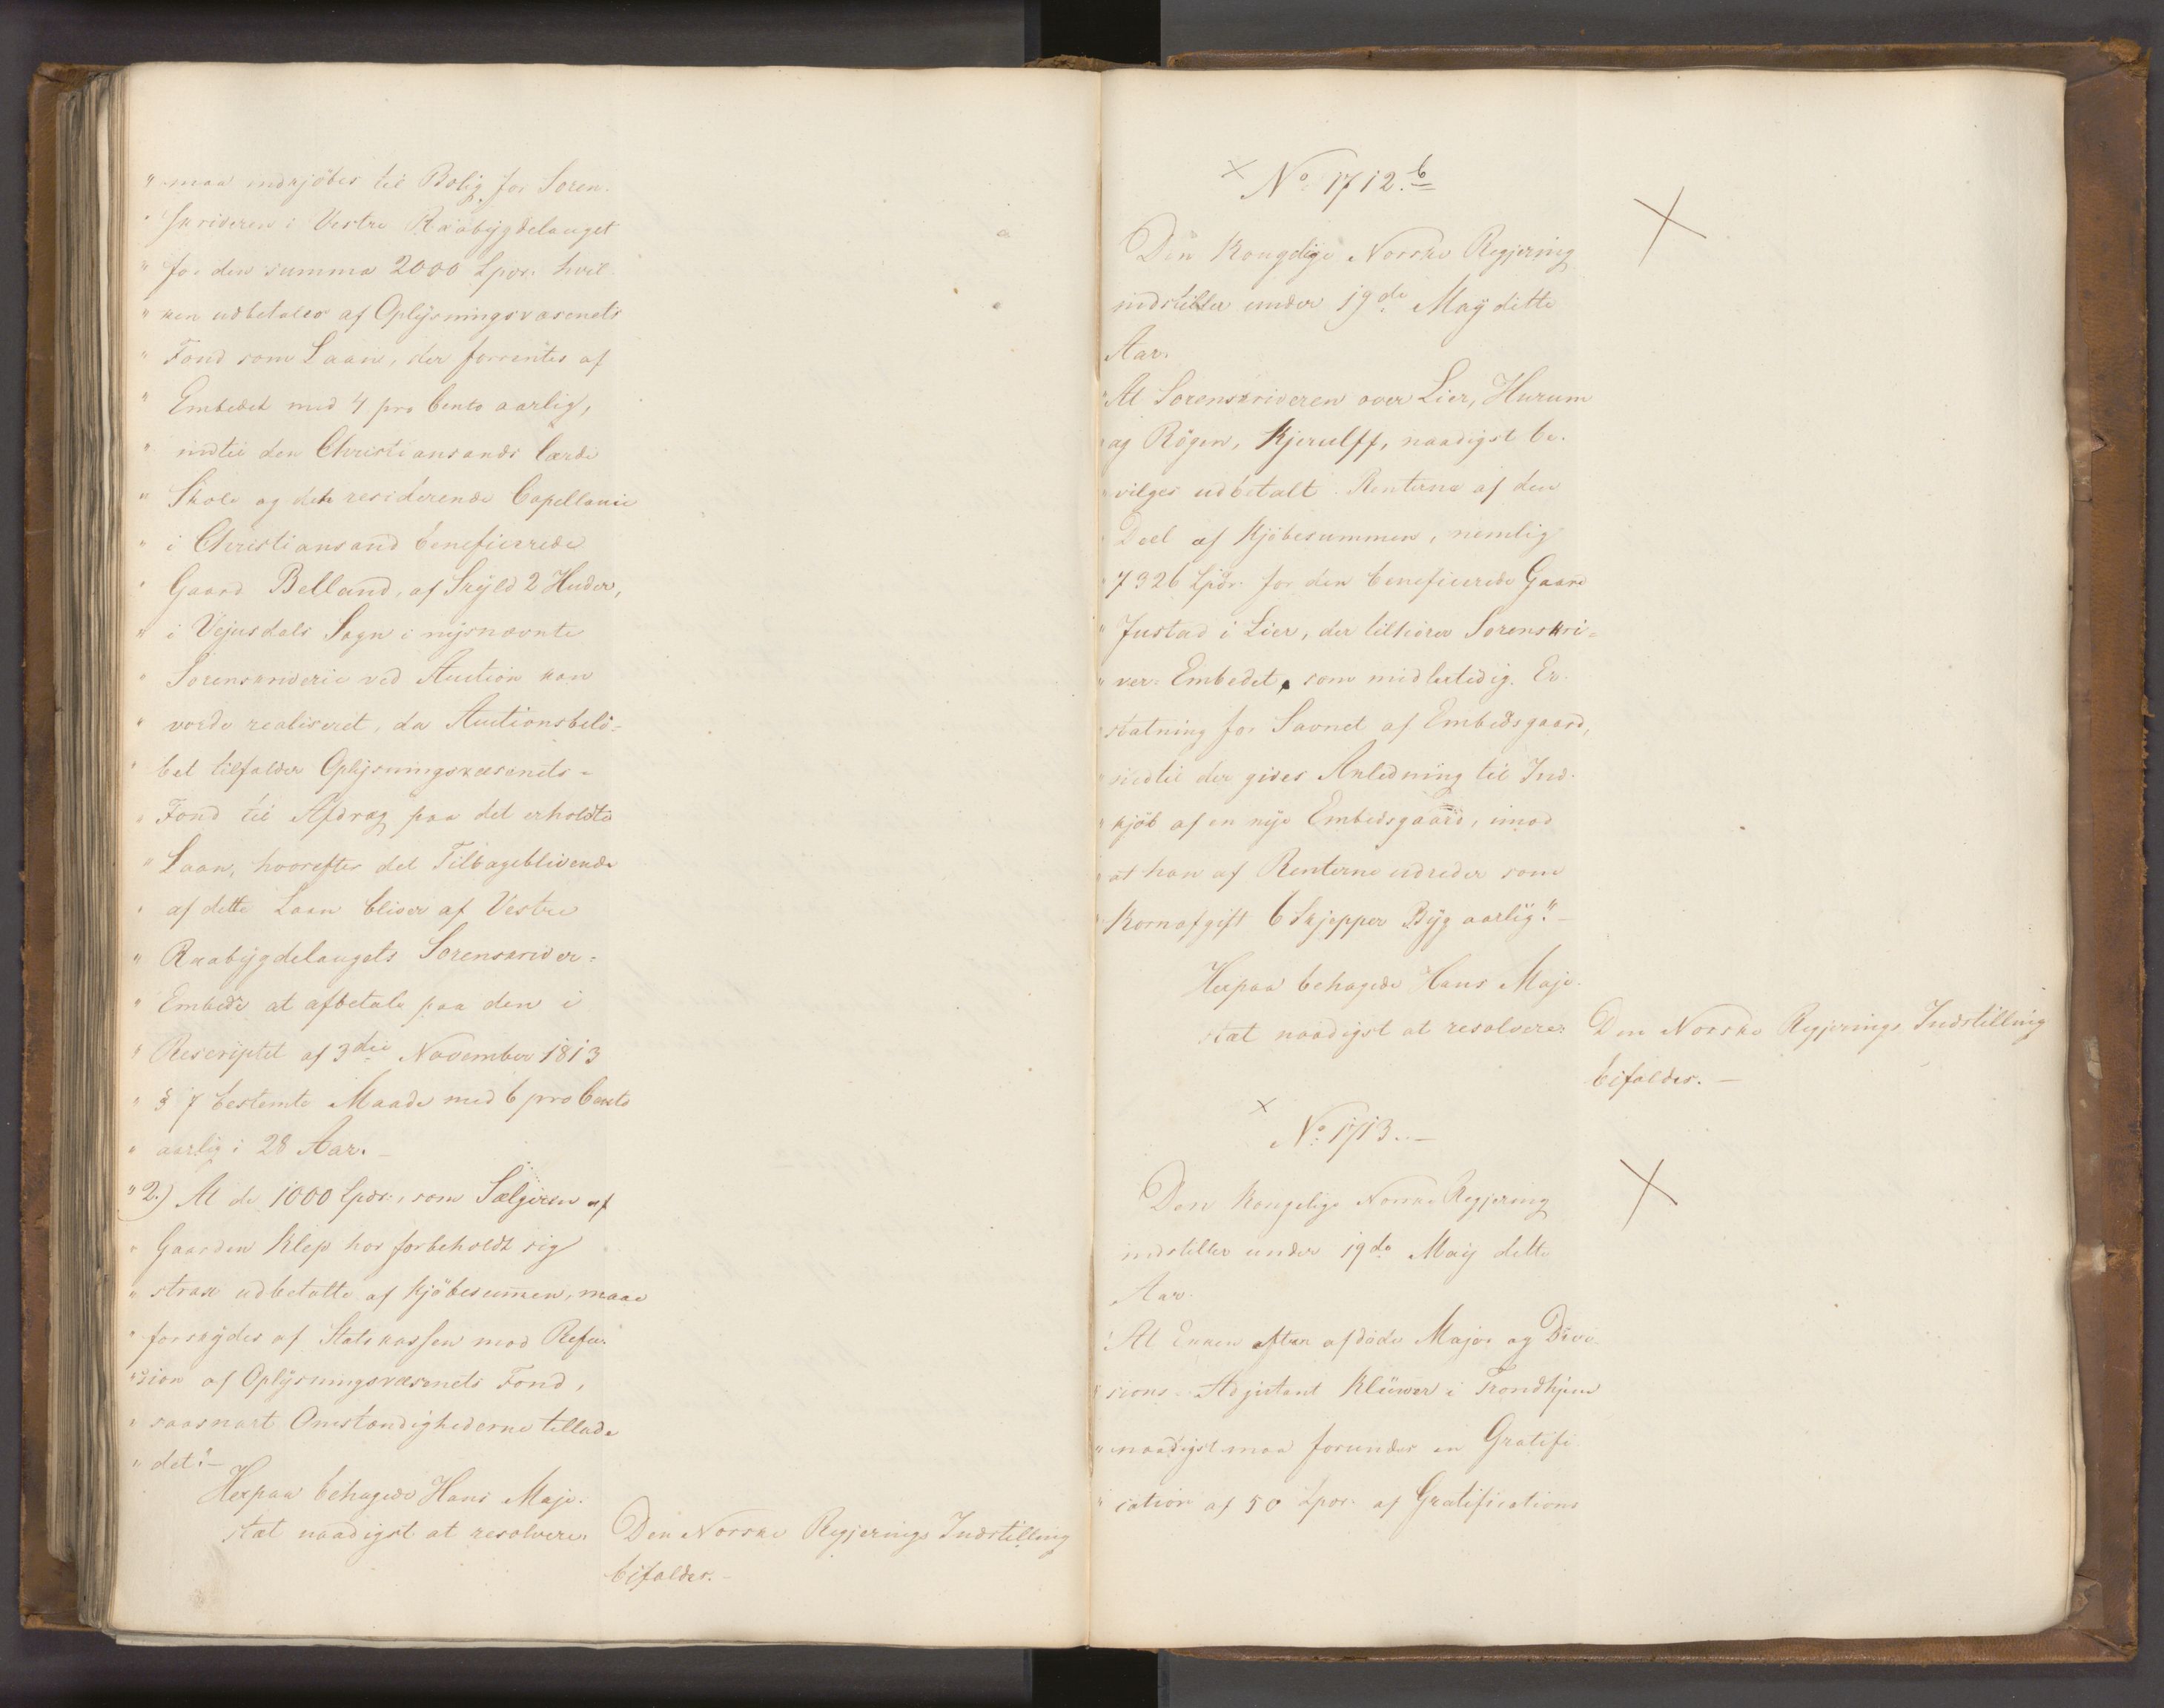 " maa indkjöbes til Bolig for Soren-
" skriveren i Vestre Raabygdelauget
" for den summa 2000 Spdr. hvil-
" ken udbetales af Oplysningsvæsenets
" Fond som Laan, der forrentes af
" Embedet med 4 pro Cento aarlig,
" indtil den Christiansands lærde
" Skole og det residerende Capellanie
" i Christiansand beneficerede
" Gaard Belland, af Skyld 2 Huder,
" i Vejusdals Sogn i nysnævnte
" Sorenskriverie ved Auction kan
" vorde realiseret, da Auctionsbelö-
" bet tilfalder Oplysningsvæsenets-
" Fond til Afdrag paa det erholdte
" Laan, hvorefter det Tilbageblivende
" af dette Laan bliver af Vestre
" Raabygdelaugets Sorenskriver-
" Embede at afbetale paa den i
" Rescriptet af 3die November 1813
" § 7 bestemte Maade med 6 pro Cento
" aarlig i 28 Aar. —
" 2.) At de 1000 Spdr., som Sælgeren af
" Gaarden Klep har forbeholdt sig
" strax udbetalte af Kjöbesummen, maae
" forskydes af Statskassen mod Refu-
" sion af Oplysningsvæsenets Fond,
" saasnart Omstændighederne tillade
" det." —
Herpaa behagede Hans Maje-
stæt naadigst at resolvere: Den Norske Regjerings Indstilling
bifaldes. —
× No 1712. b
Den Kongelige Norske Regjering
indstiller under 19de May dette
Aar.
" At Sorenskriveren over Lier, Hurum
" og Rögen, Kjerulff, naadigst be-
" vilges udbetalt Renterne af den
" Deel af Kjöbesummen, nemlig
" 7326 Spdr. for den beneficerede Gaard
" Justad i Lier, der tilhörer Sorenskri-
" ver-Embedet, som midlertidig Er-
" statning for Savnet af Embedsgaard,
" indtil der gives Anledning til Ind-
" kjöb af en nye Embedsgaard, imod
" at han af Renterne udreder som
" Kornafgift 6 Skjepper Byg aarlig." —
Herpaa behagede Hans Maje-
stæt naadigst at resolvere: Den Norske Regjerings Indstilling
bifaldes. —
× No 1713. —
Den Kongelige Norske Regjering
indstiller under 19de May dette
Aar.
" At Enken efter afdöde Major og Divi-
" sions-Adjutant Klüwer i Trondhjem
" naadigst maa forundes en Gratifi-
" cation af 50 Spdr. af Gratifications